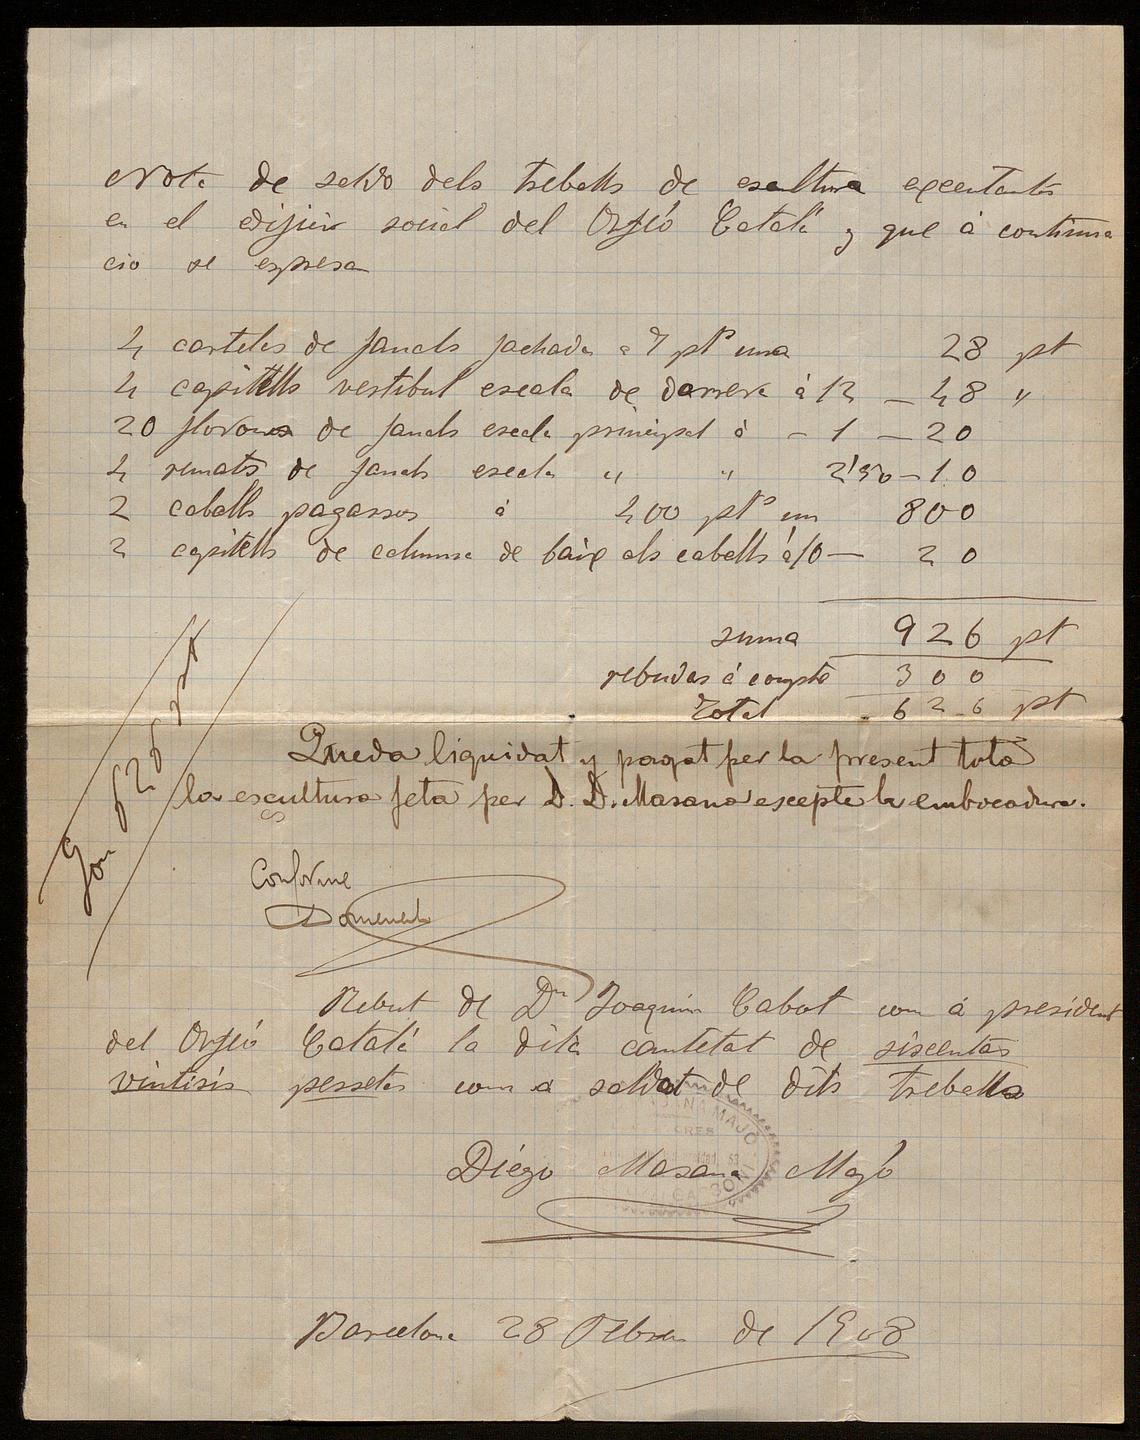 Nota de saldo dels treballs de escultura egecutants
en el edifici social del Orfeó Catalá y que á continua
cio se expresa
4 carteles de fanals fachada a 7 pts una 28 pt
4 capitells vestibul escala de darrera á 12 — 48 "
20 florons de fanals escala principal á — 1 — 20
4 remats de fanals escala " " 2'50 — 10
2 caballs pagassos á 400 pts un 800
2 capitells de columna de baix als caballs á 10 — 20
suma 926 pt
rebudas á compte 300
Total 626 pt
Queda liquidat y pagat per la present tota
la escultura feta per D. D. Masana escepte la embocadura.
Conforme
Domenech
Rebut de Dn Joaquin Cabot com á president
del Orfeó Catalá la dita cantitat de siscentas
vintisis pessetas com a saldo de dits treballs
Diégo Masana Majó
Barcelona 28 Febrer de 1908